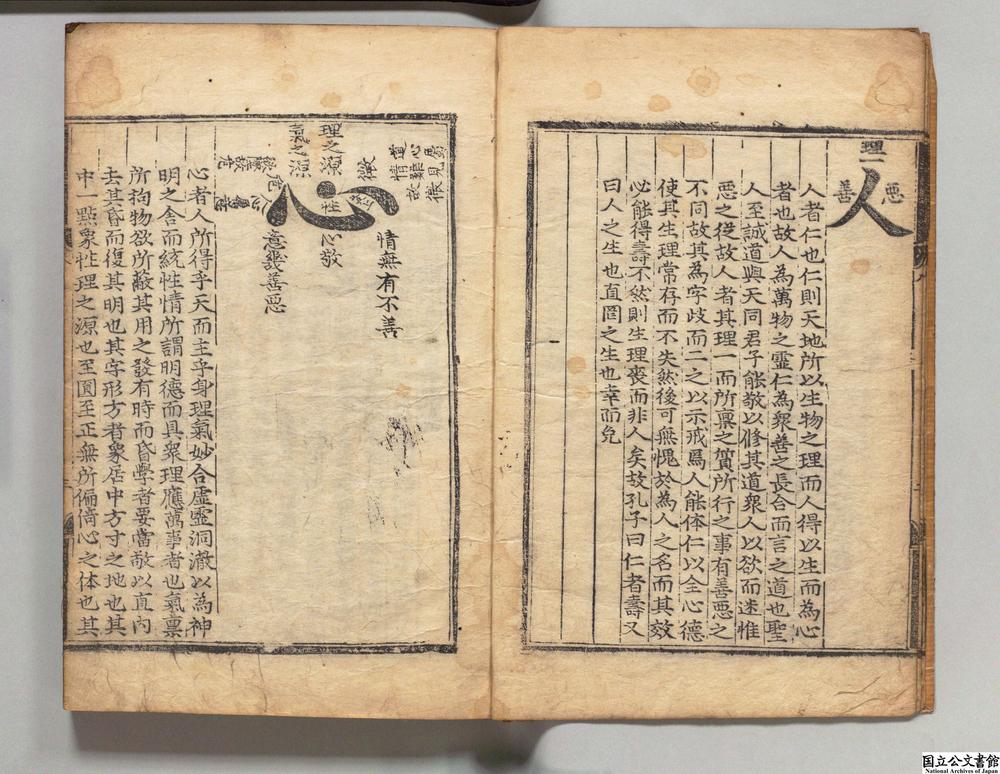 理一
人
善
悪
人者仁也仁則天地所以生物之理而人得以生而為心
者也故人為萬物之靈仁為衆善之長合而言之道也聖
人至誠道與天同君子能敬以修其道衆人以欲而迷惟
悪之從故人者其理一而所禀之質所行之事有善悪之
不同故其為字歧而二之以示戒焉人能体仁以全心德
使其生理常存而不失然後可無愧於為人之名而其效
必能得壽不然則生理喪而非人矣故孔子曰仁者壽又
曰人之生也直罔之生也幸而免
心
理之源
氣之源
性
情無有不善
心敬
意幾善悪
心者人所得乎天而主乎身理氣妙合虛靈洞澈以為神
明之舍而統性情所謂明德而具衆理應萬事者也氣禀
所拘物欲所蔽其用之發有時而昏學者要當敬以直內
去其昏而復其明也其字形方者象居中方寸之地也其
中一點象性理之源也至圓至正無所偏倚心之体也其
国立公文書館
National Archives of Japan